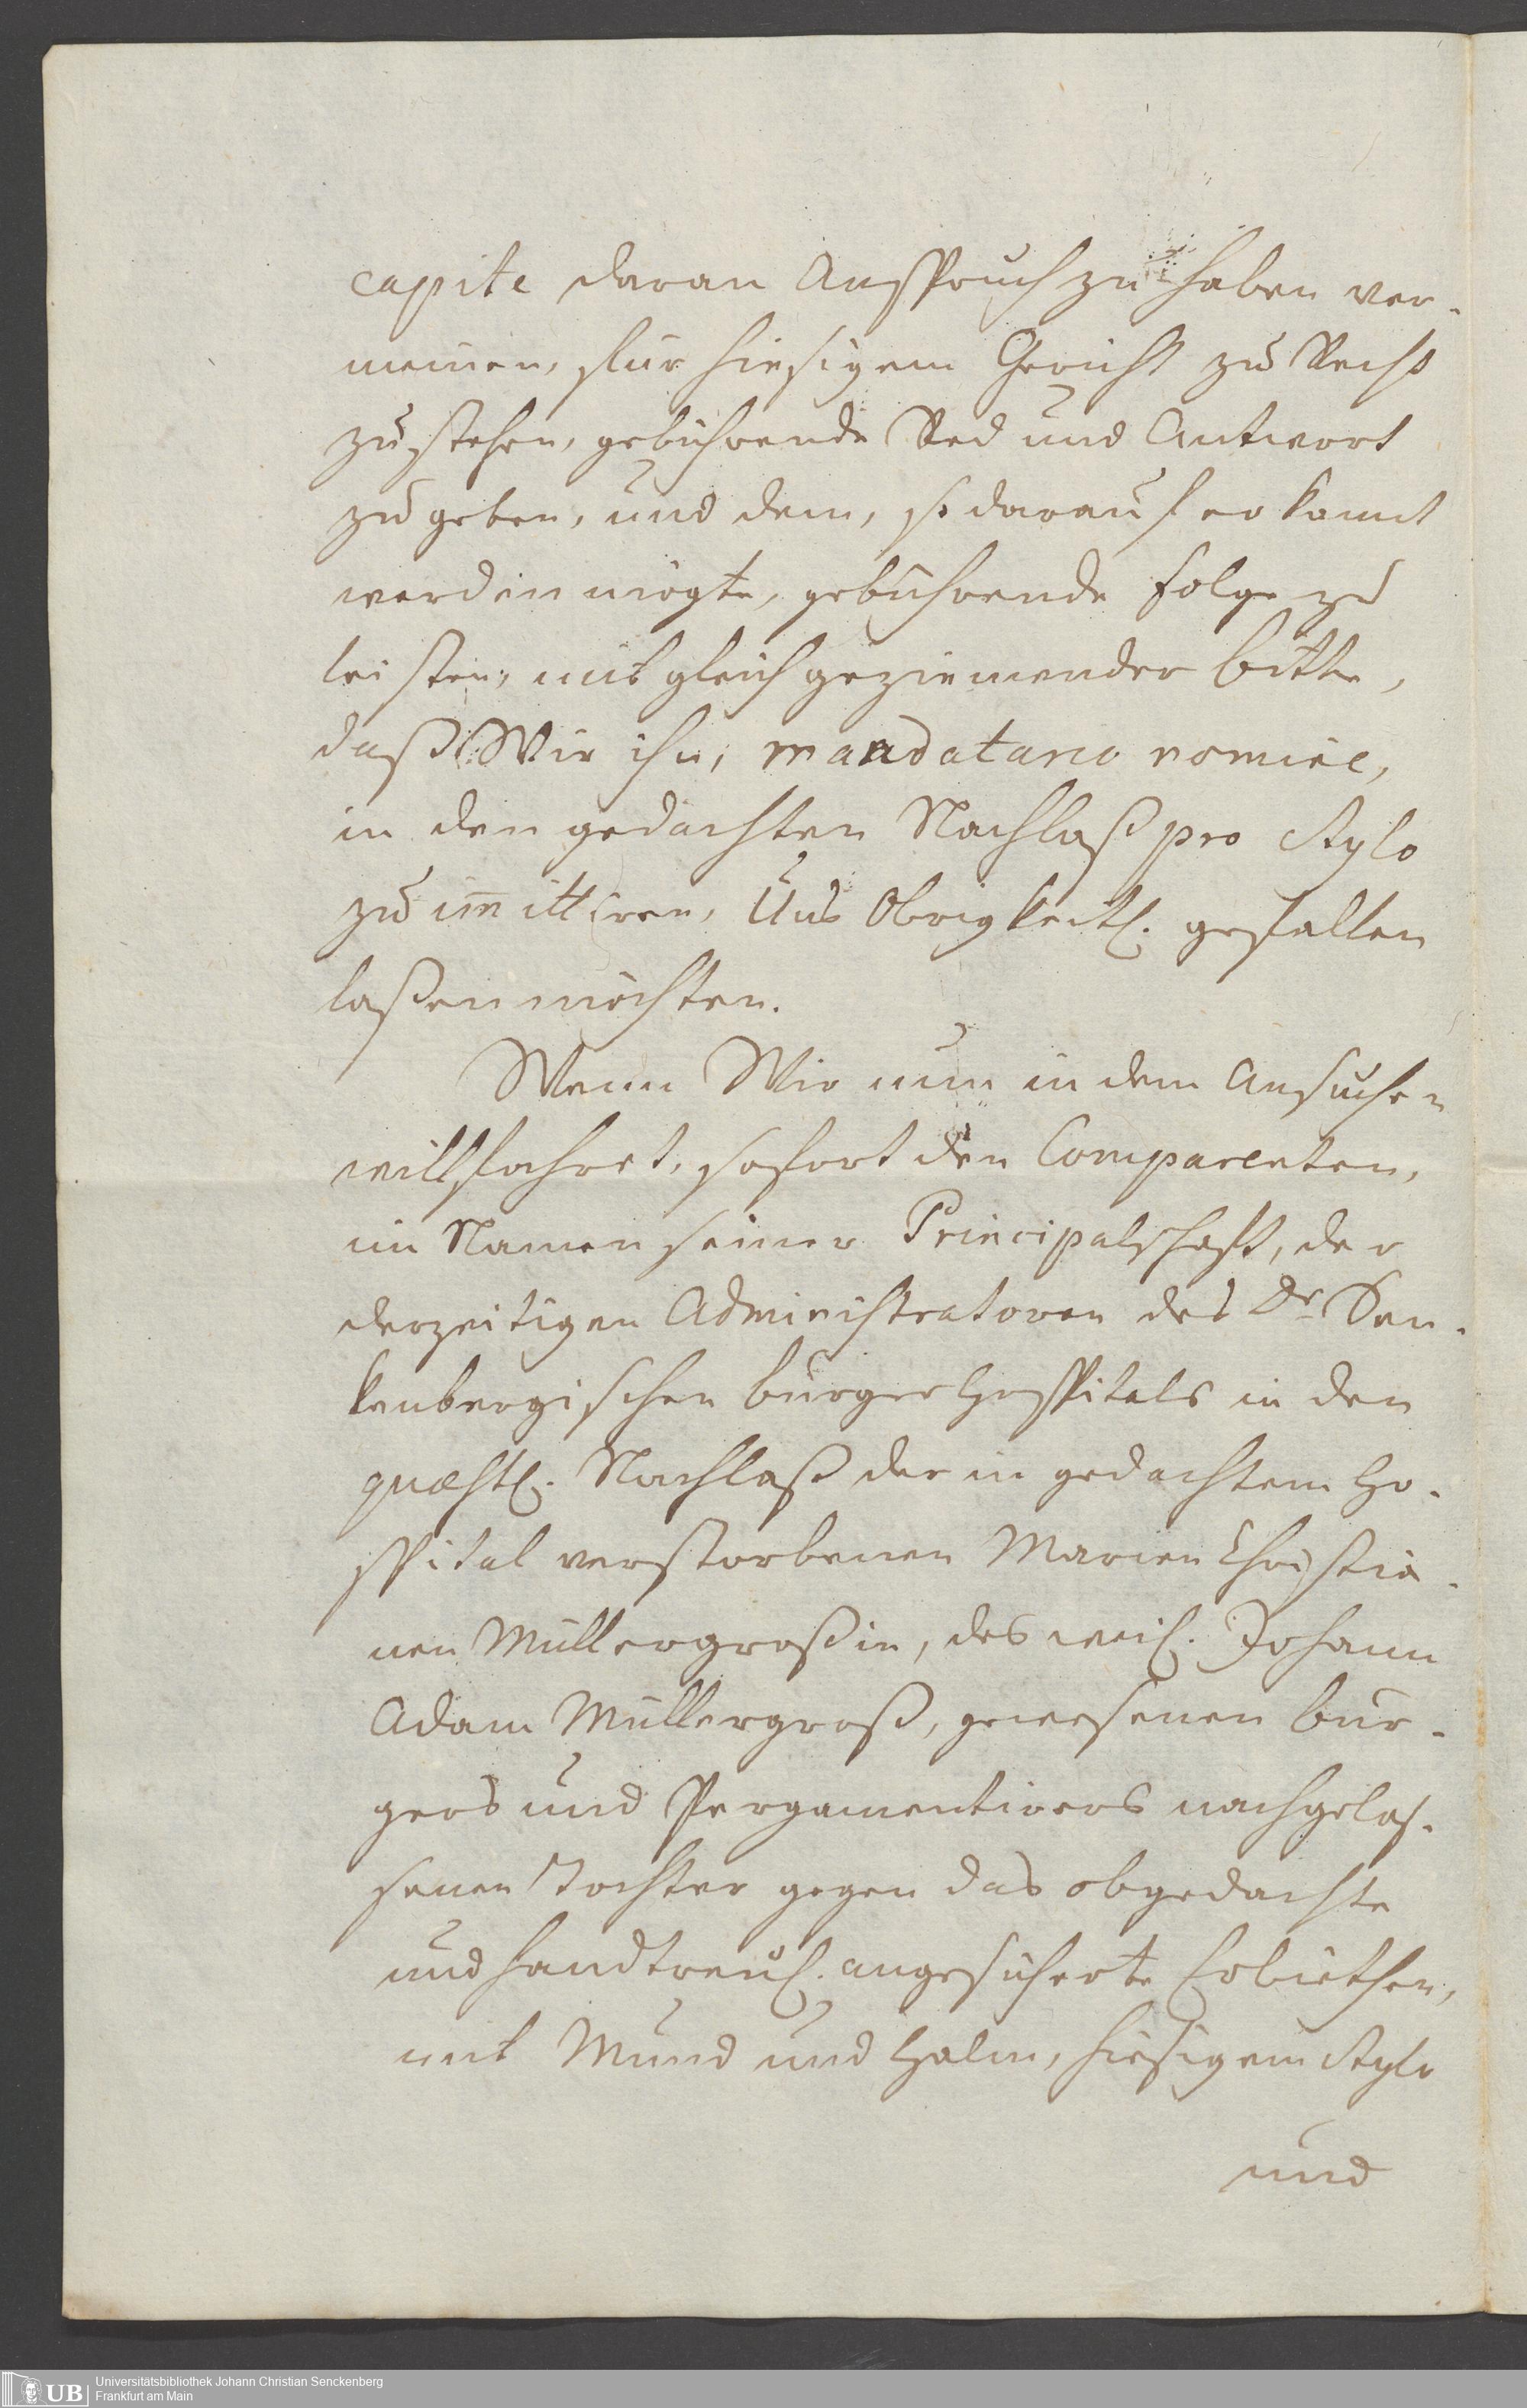 capite daran Anspruch zu haben ver-
meinen, für hiesigem Gericht zu Recht
zu stehen, gebührende Red und Antwort
zu geben, und dem, so darauf erkannt
werden mögte, gebührende Folge zu
leisten, mit gleich geziemender bitte,
daß Wir ihn, mandatario nomine,
in den gedachten Nachlaß pro stylo
zu im̅ittiren, Uns Obrigkeitl. gefallen
laßen möchten.
Wenn Wir nun in dem Ansuchen
willfahret, sofort den Comparenten,
im Namen seiner Principalschaft, der
derzeitigen Administratoren des Dr. Sen-
kenbergischen burger Hospitals in den
quæstl. Nachlaß der in gedachtem Ho-
spital verstorbenen Marien Christia-
nen Müllergroßin, des weil. Johann
Adam Müllergroß, gewesenen bur-
gers und Pergamentirers nachgelas-
senen Tochter gegen das obgedachte
und handtreul. angesicherte Erbiethen,
mit Mund und Halm, hiesigem Stylo
und
Universitätsbibliothek Johann Christian Senckenberg
Frankfurt am Main
UB